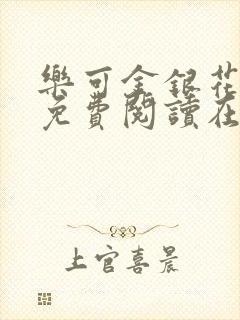 樂可金銀花
免費閱讀在
上官喜晨